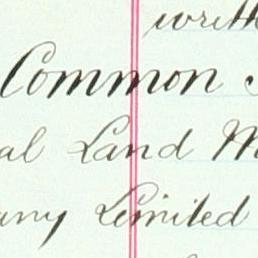 writt
Common
al Land M
any Limited